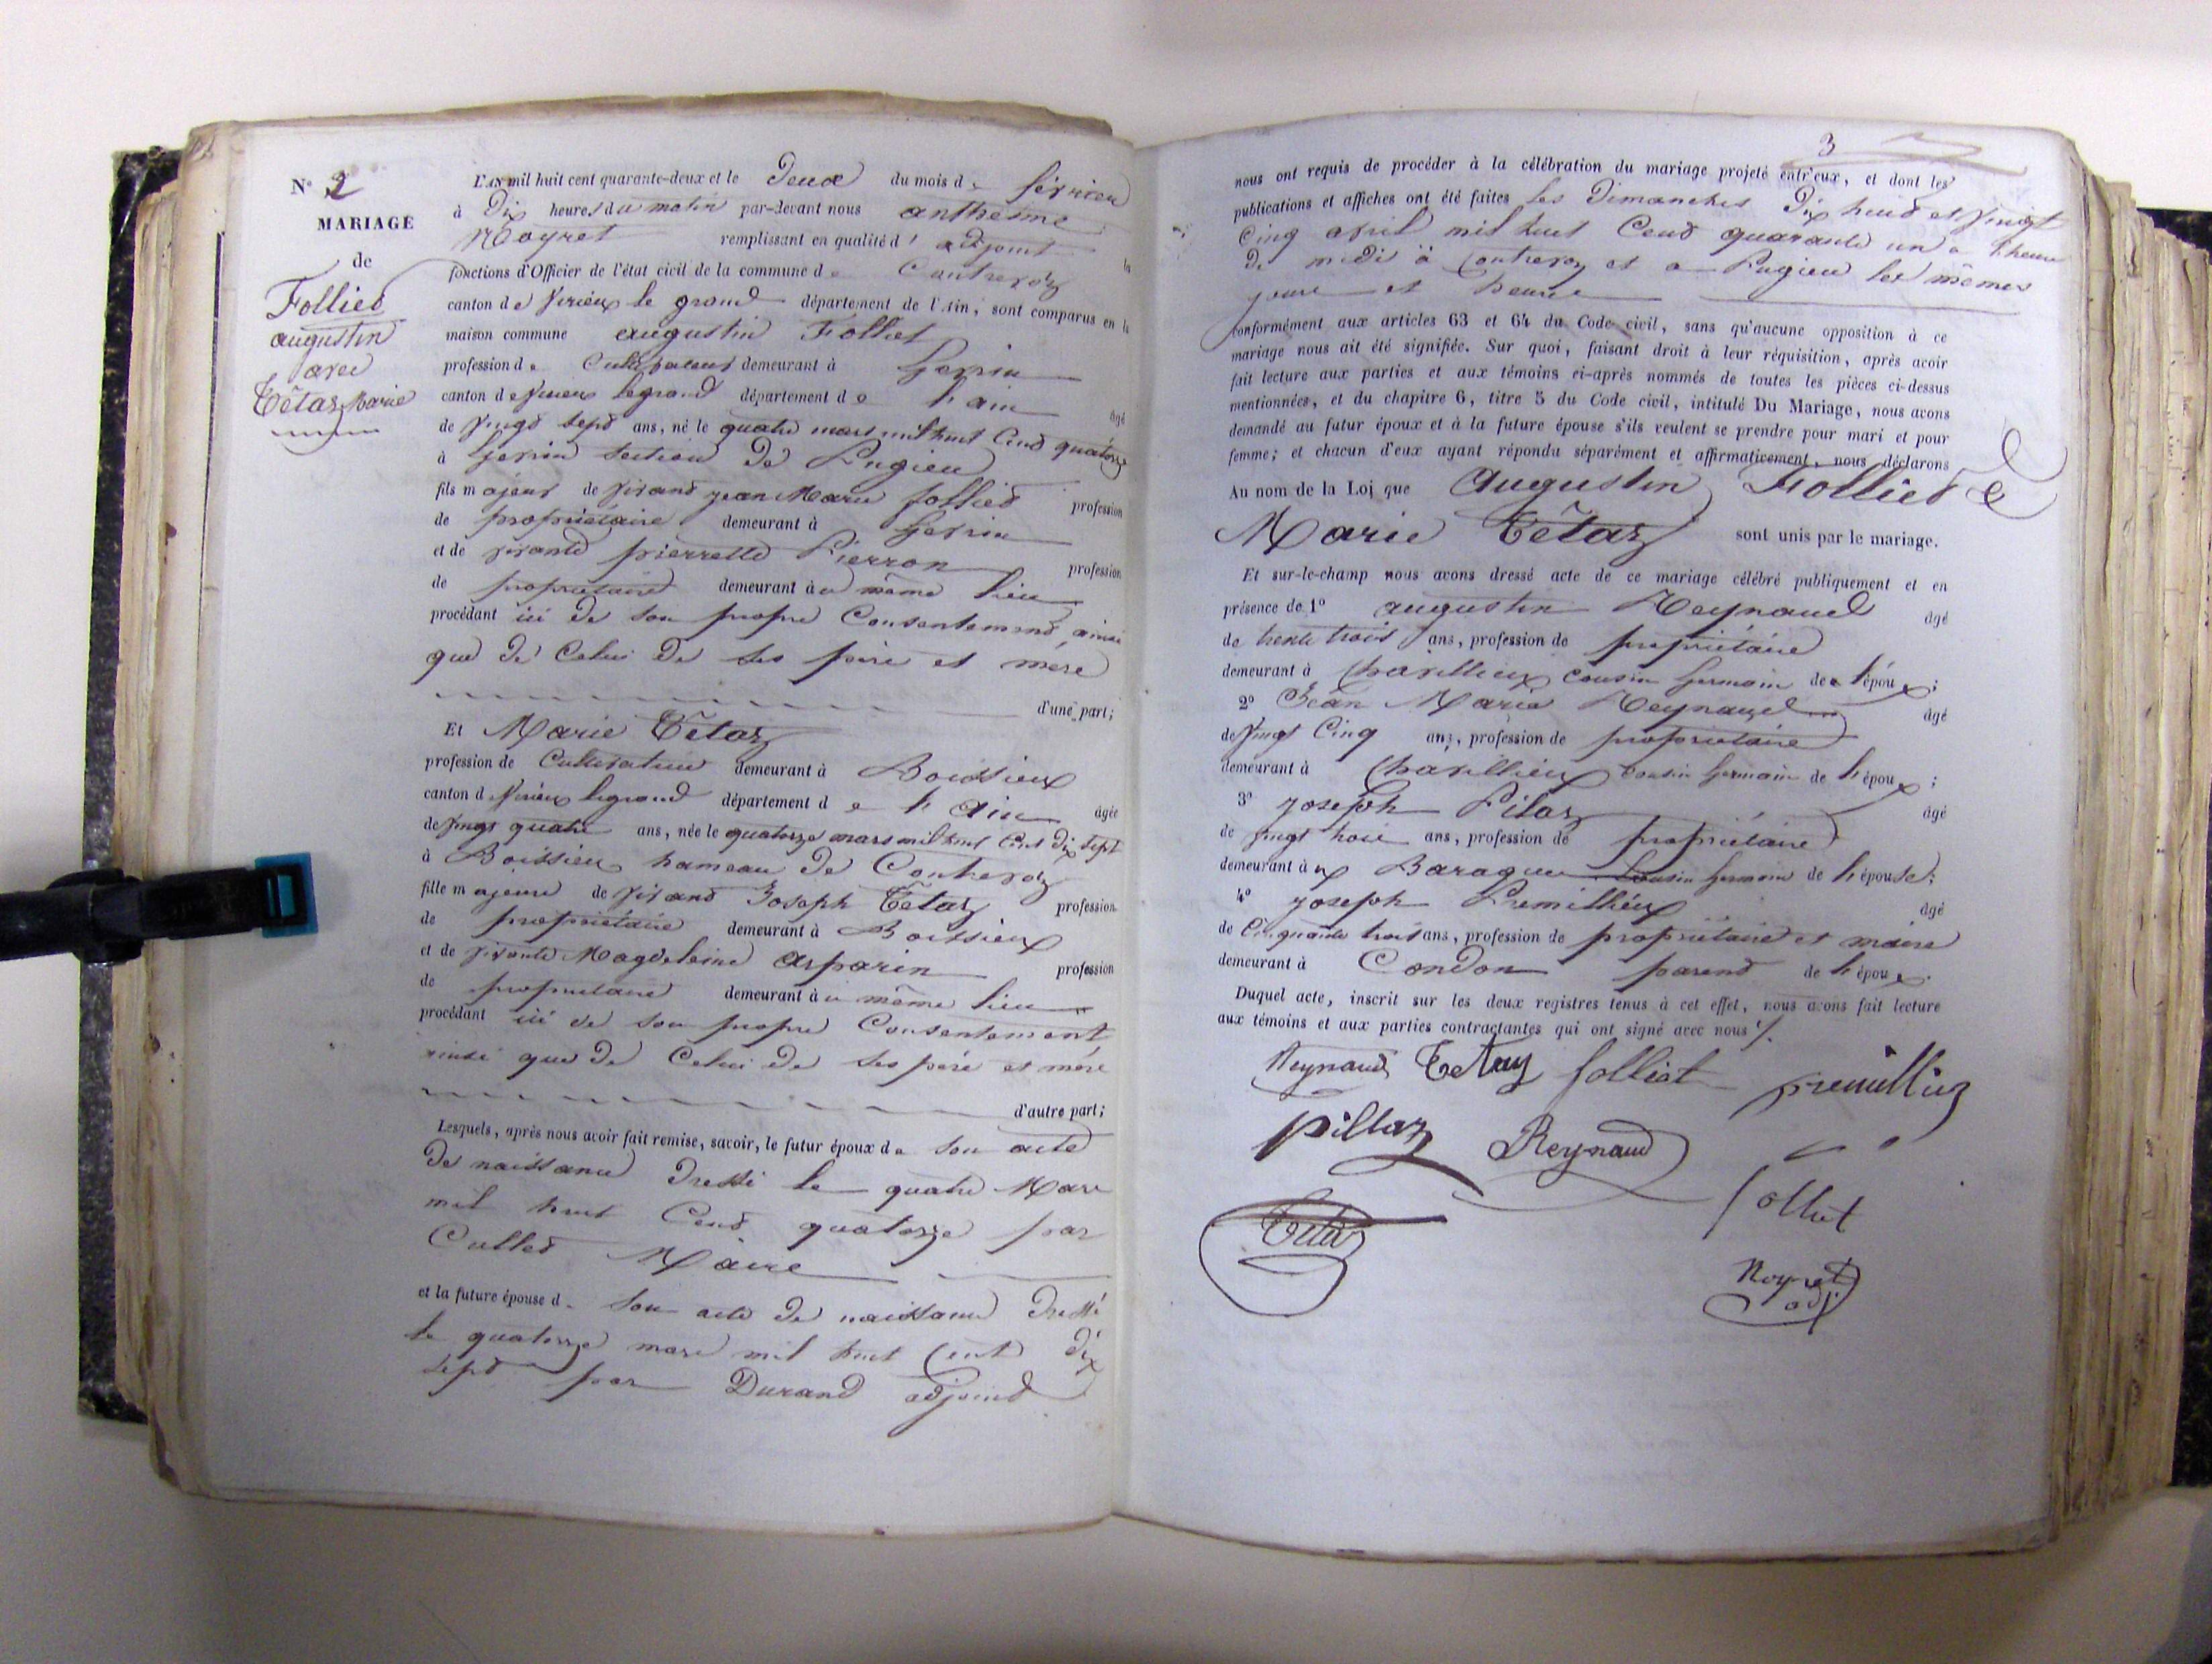 N° 2
MARIAGE
de
Folliet
augustin
avec
Tétaz Marie
L'AN mil huit cent quarante-deux et le Deux du mois de février
à Dix heures du matin par-devant nous anthelme
Noyret remplissant en qualité d'adjoint les
fonctions d'Officier de l'état civil de la commune de Contrevoz
canton de Virieu le grand département de l'Ain, sont comparus en la
maison commune augustin Folliet
profession de Cultivateur demeurant à
canton de Virieu legrand département de l'ain âgé
de vingt sept ans, né le quatre mars mil huit Cent quatorze
à section de Pugieu
fils majeur de vivant jean Marie folliet profession
de propriétaire demeurant à
et de vivante pierrette Pierron profession
de propriétaire demeurant au même lieu
procédant ici de son propre Consentement ainsi
que de Celui de ses père et mère
d'une part;
Et Marie Tétaz
profession de Cultivatrice demeurant à Boissieu
canton de Virieu legrand département de l'Ain âgée
de vingt quatre ans, née le quatorze mars mil huit Cent dix sept
à Boissieu hameau de Contrevoz
fille majeure de vivant Joseph Tétaz profession
de propriétaire demeurant à Boissieu
et de vivante Magdeleine Asparin profession
de propriétaire demeurant au même lieu
procédant ici de son propre Consentement
ainsi que de Celui de ses père et mère
d'autre part;
Lesquels, après nous avoir fait remise, savoir, le futur époux de son acte
de naissance Dressé le quatre Mars
mil huit Cent quatorze par
Cullet Maire
et la future épouse de son acte de naissance Dressé
le quatorze mars mil huit Cent dix
sept par Durand adjoind
3
nous ont requis de procéder à la célébration du mariage projeté entr'eux, et dont les
publications et affiches ont été faites les Dimanches Dix huit et vingt
Cinq avril mil huit Cent quarante un a l'heure
De midi à Contrevoz et a Pugieu les mêmes
jours et heures
conformément aux articles 63 et 64 du Code civil, sans qu'aucune opposition à ce
mariage nous ait été signifiée. Sur quoi, faisant droit à leur réquisition, après avoir
fait lecture aux parties et aux témoins ci-après nommés de toutes les pièces ci-dessus
mentionnées, et du chapitre 6, titre 5 du Code civil, intitulé Du Mariage, nous avons
demandé au futur époux et à la future épouse s'ils veulent se prendre pour mari et pour
femme; et chacun d'eux ayant répondu séparément et affirmativement, nous déclarons
Au nom de la Loi que Augustin Folliet &
Marie Tétaz sont unis par le mariage.
Et sur-le-champ nous avons dressé acte de ce mariage célébré publiquement et en
présence de 1° augustin Reynaud âgé
de trente trois ans, profession de propriétaire
demeurant à Charillieux Cousin germain de l'époux;
2° Jean Marie Reynaud âgé
de vingt Cinq ans, profession de propriétaire
demeurant à Charillieux Cousin germain de l'époux;
3° joseph Pilaz âgé
de vingt trois ans, profession de propriétaire
demeurant aux Baraques Cousin germain de l'épouse;
4° joseph Premillieux âgé
de Cinquante trois ans, profession de propriétaire et maire
demeurant à Condon parend de l'époux.
Duquel acte, inscrit sur les deux registres tenus à cet effet, nous avons fait lecture
aux témoins et aux parties contractantes qui ont signé avec nous /.
Reynaud Tetaz folliet premillieu
pillaz Reynaud
folliet
Tetaz
Noyret
adj